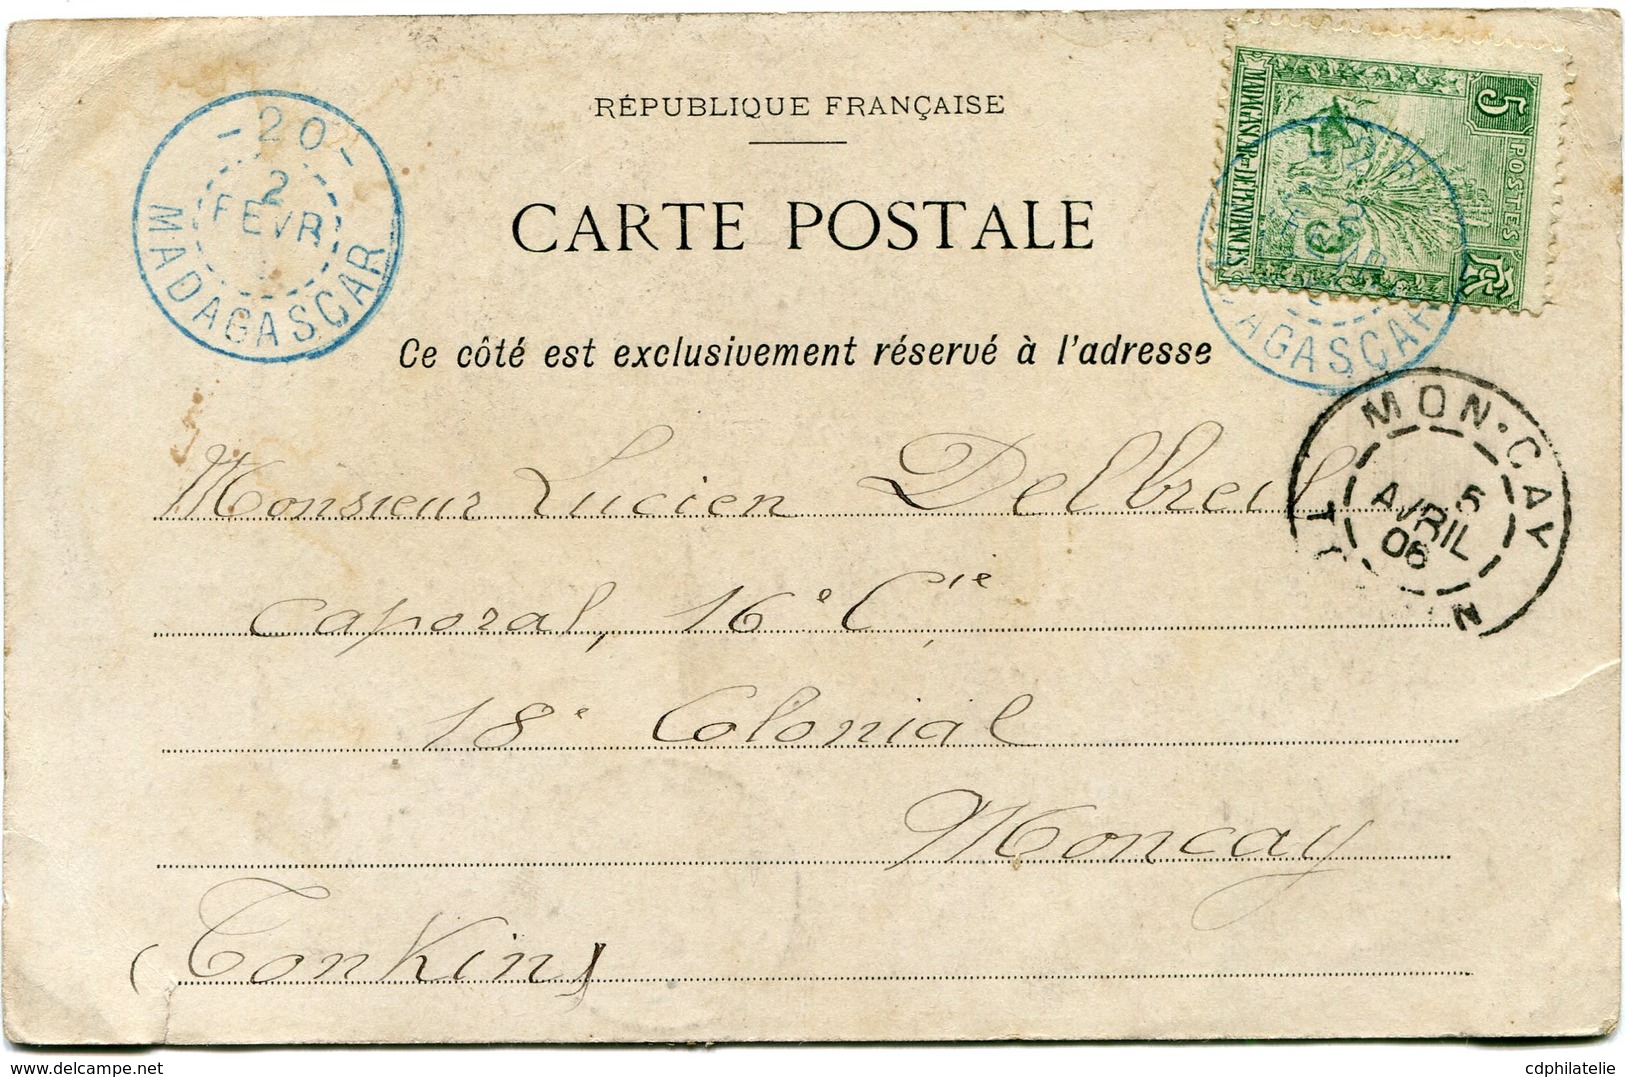 RÉPUBLIQUE FRANÇAISE
CARTE POSTALE
Ce côté est exclusivement réservé à l'adresse
-20-
2
FEVR
MADAGASCAR
5
POSTES
MADAGASCAR ET DÉPENDANCES
RF
2
AGASCAR
MON-CAY
5
AVRIL
06
Monsieur Lucien Delbreil
caporal, 16e Cie
18e Colonial
Moncay
(Tonkin)
delcampe.net
cdphilatelie